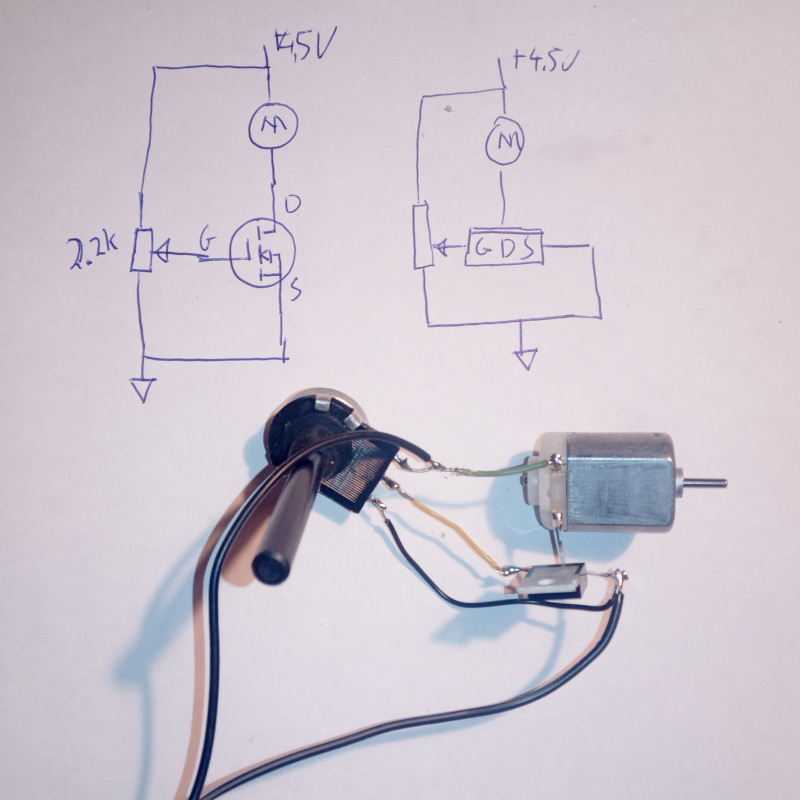 +4,5V
M
D
2.2k
G
S
+4.5V
M
G D S